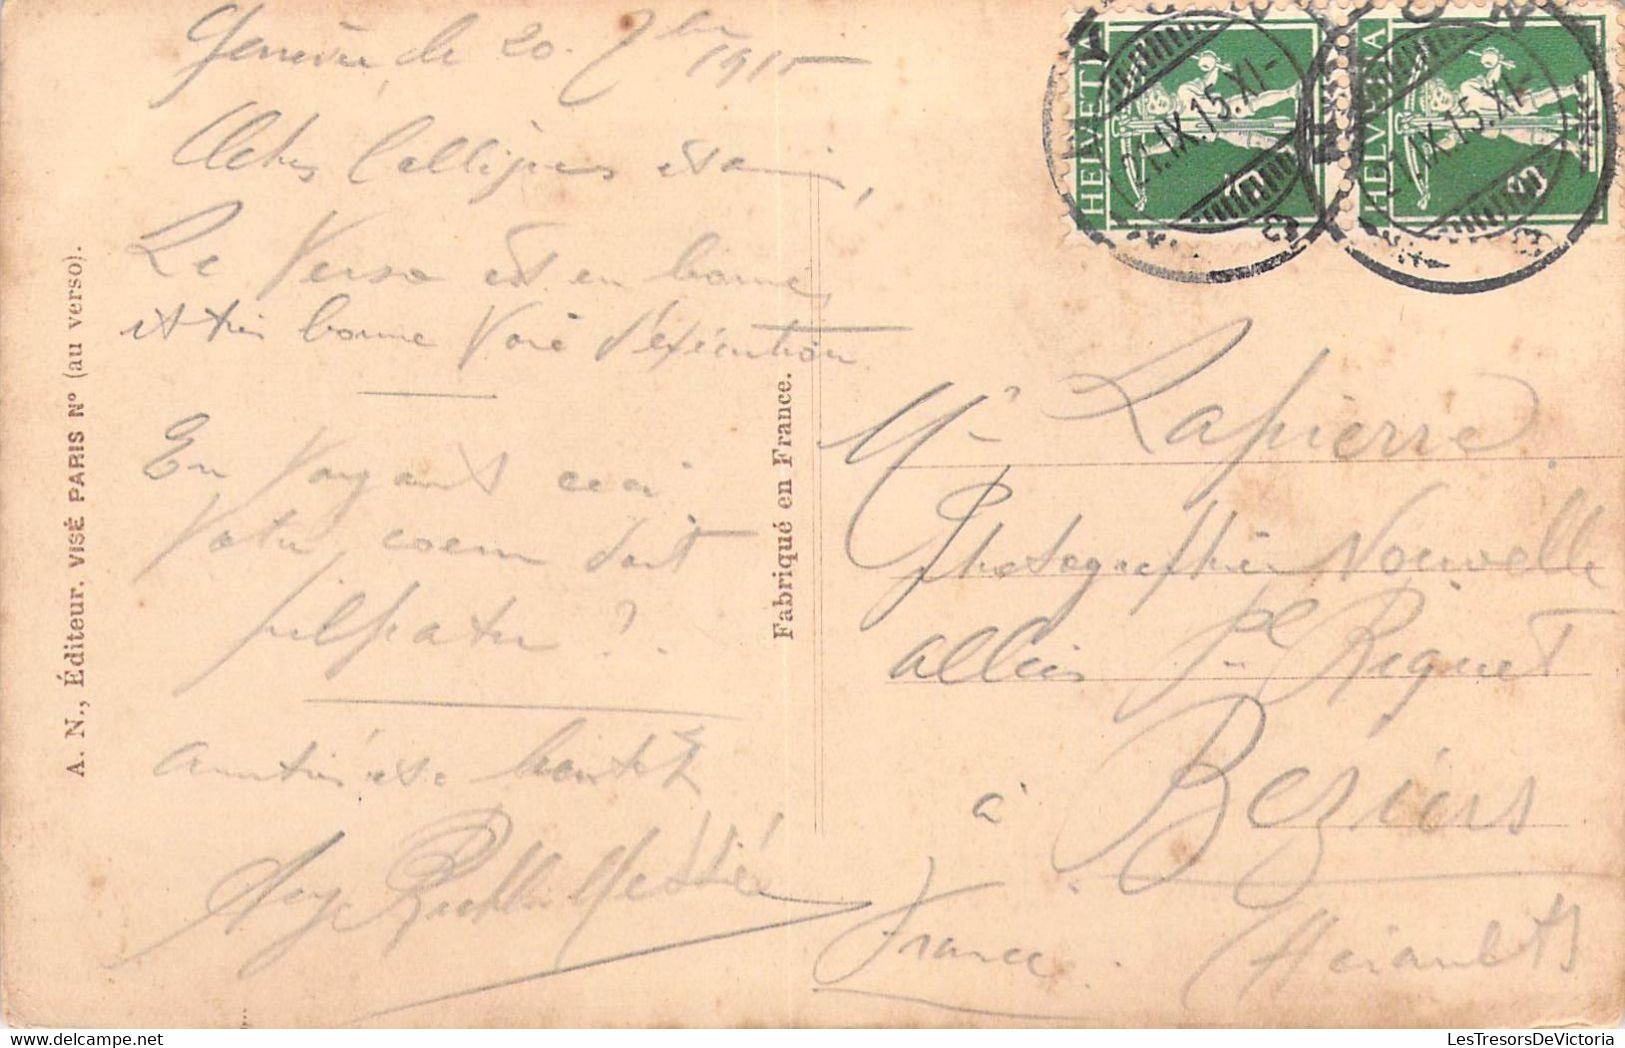 Genève le 20. 7bre 1915
Chers Collègues et amis,
Le Verso est en bonne,
et très bonne voie d'exécution
En voyant ceci
Votre coeur doit
palpiter ?
amitiés et bientôt
A. N., Éditeur. VISÉ PARIS N° (au verso).
Fabriqué en France.
HELVETIA
21.IX.15.XI-
HELVETIA
21.IX.15.XI-
Mr Lapierre
Photographie Nouvelle
allées Pl Riquet
à Beziers
France. (Herault)
LesTresorsDeVictoria